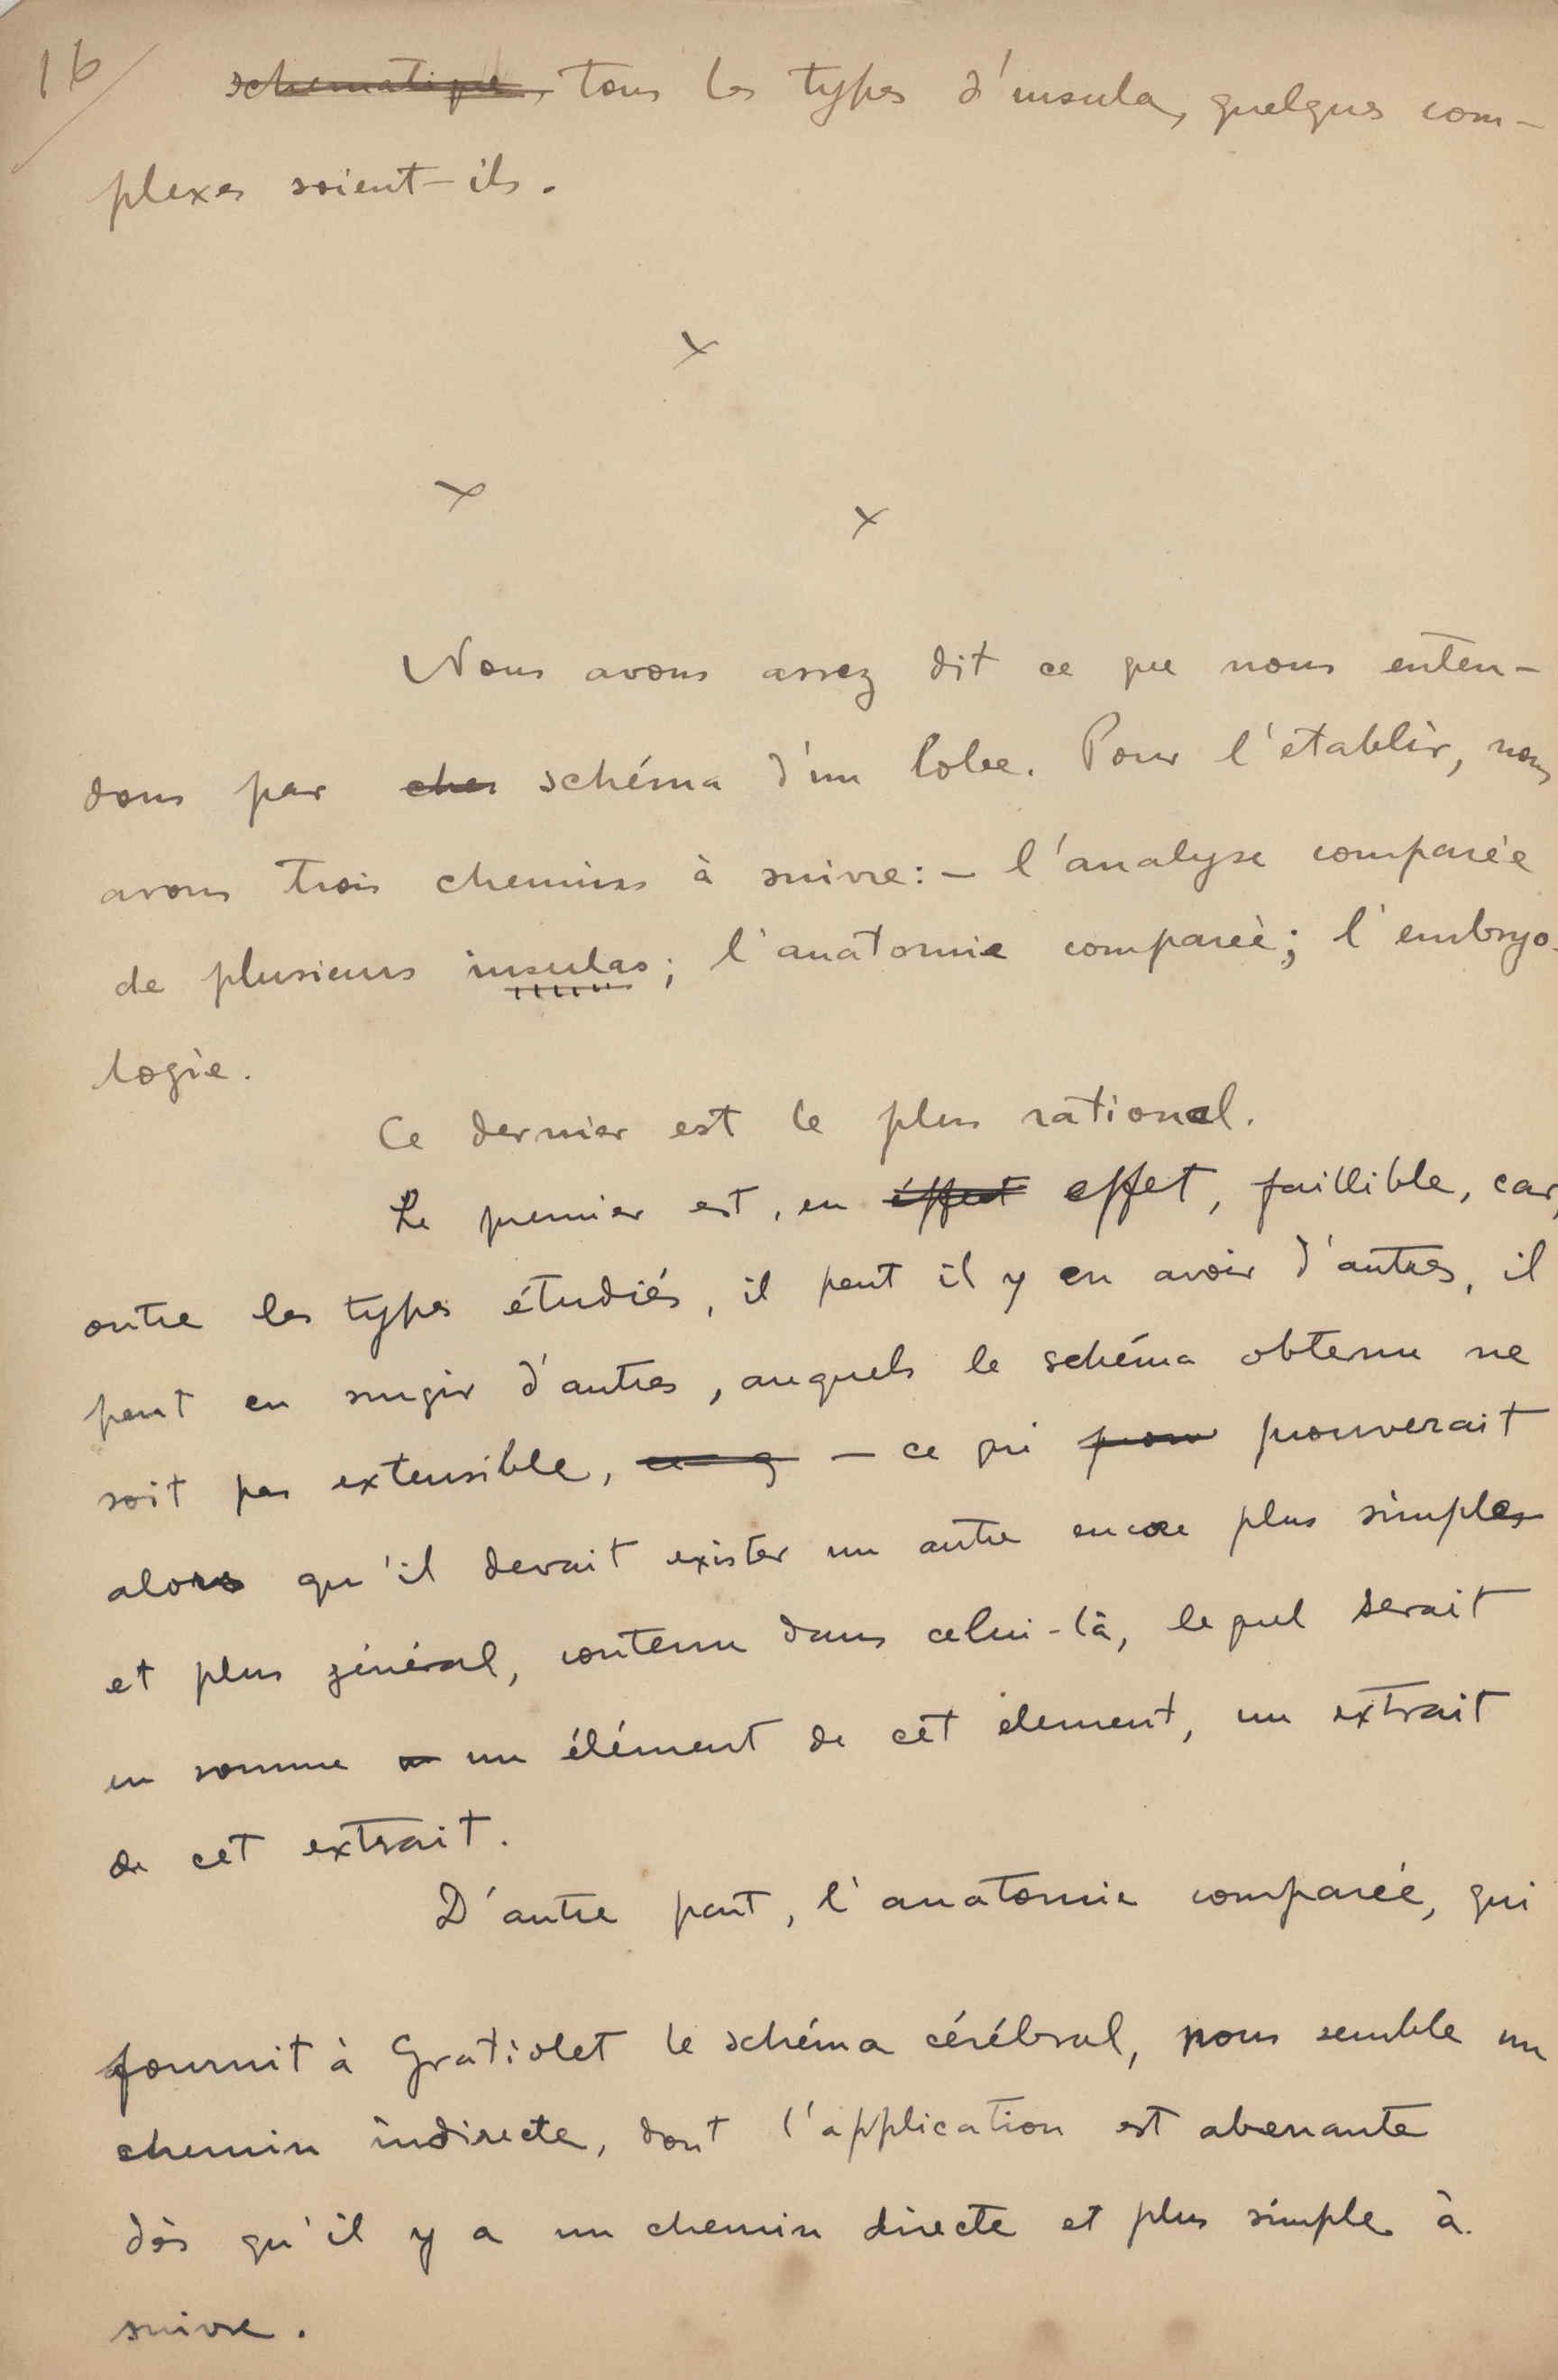 16/ schematique, tous les types d'insula, quelques com-
plexes soient-ils.
x
x x
Nous avons assez dit ce que nous enten-
dons par ches schéma d'un lobe. Pour l'etablir, nous
avons trois chemins à suivre: - l'analyse comparée
de plusieurs insulas; l'anatomie comparée; l'embryo-
logie.
Ce dernier est le plus rational.
Le premier est, en éffect effet, faillible, car,
outre les types étudiés, il peut il y en avoir d'autres, il
peut en surgir d'autres, auquels le schéma obtenu ne
soit pas extensible, - ce qui prouv prouverait
alors qu'il devait exister un autre encore plus simple
et plus général, contenu dans celui-là, lequel serait
en somme un élément de cet élement, un extrait
de cet extrait.
D'autre part, l'anatomie comparée, qui
fournit à Gratiolet le schéma cérébral, nous semble un
chemin indirecte, dont l'application est aberrante
dès qu'il y a un chemin directe et plus simple à
suivre.